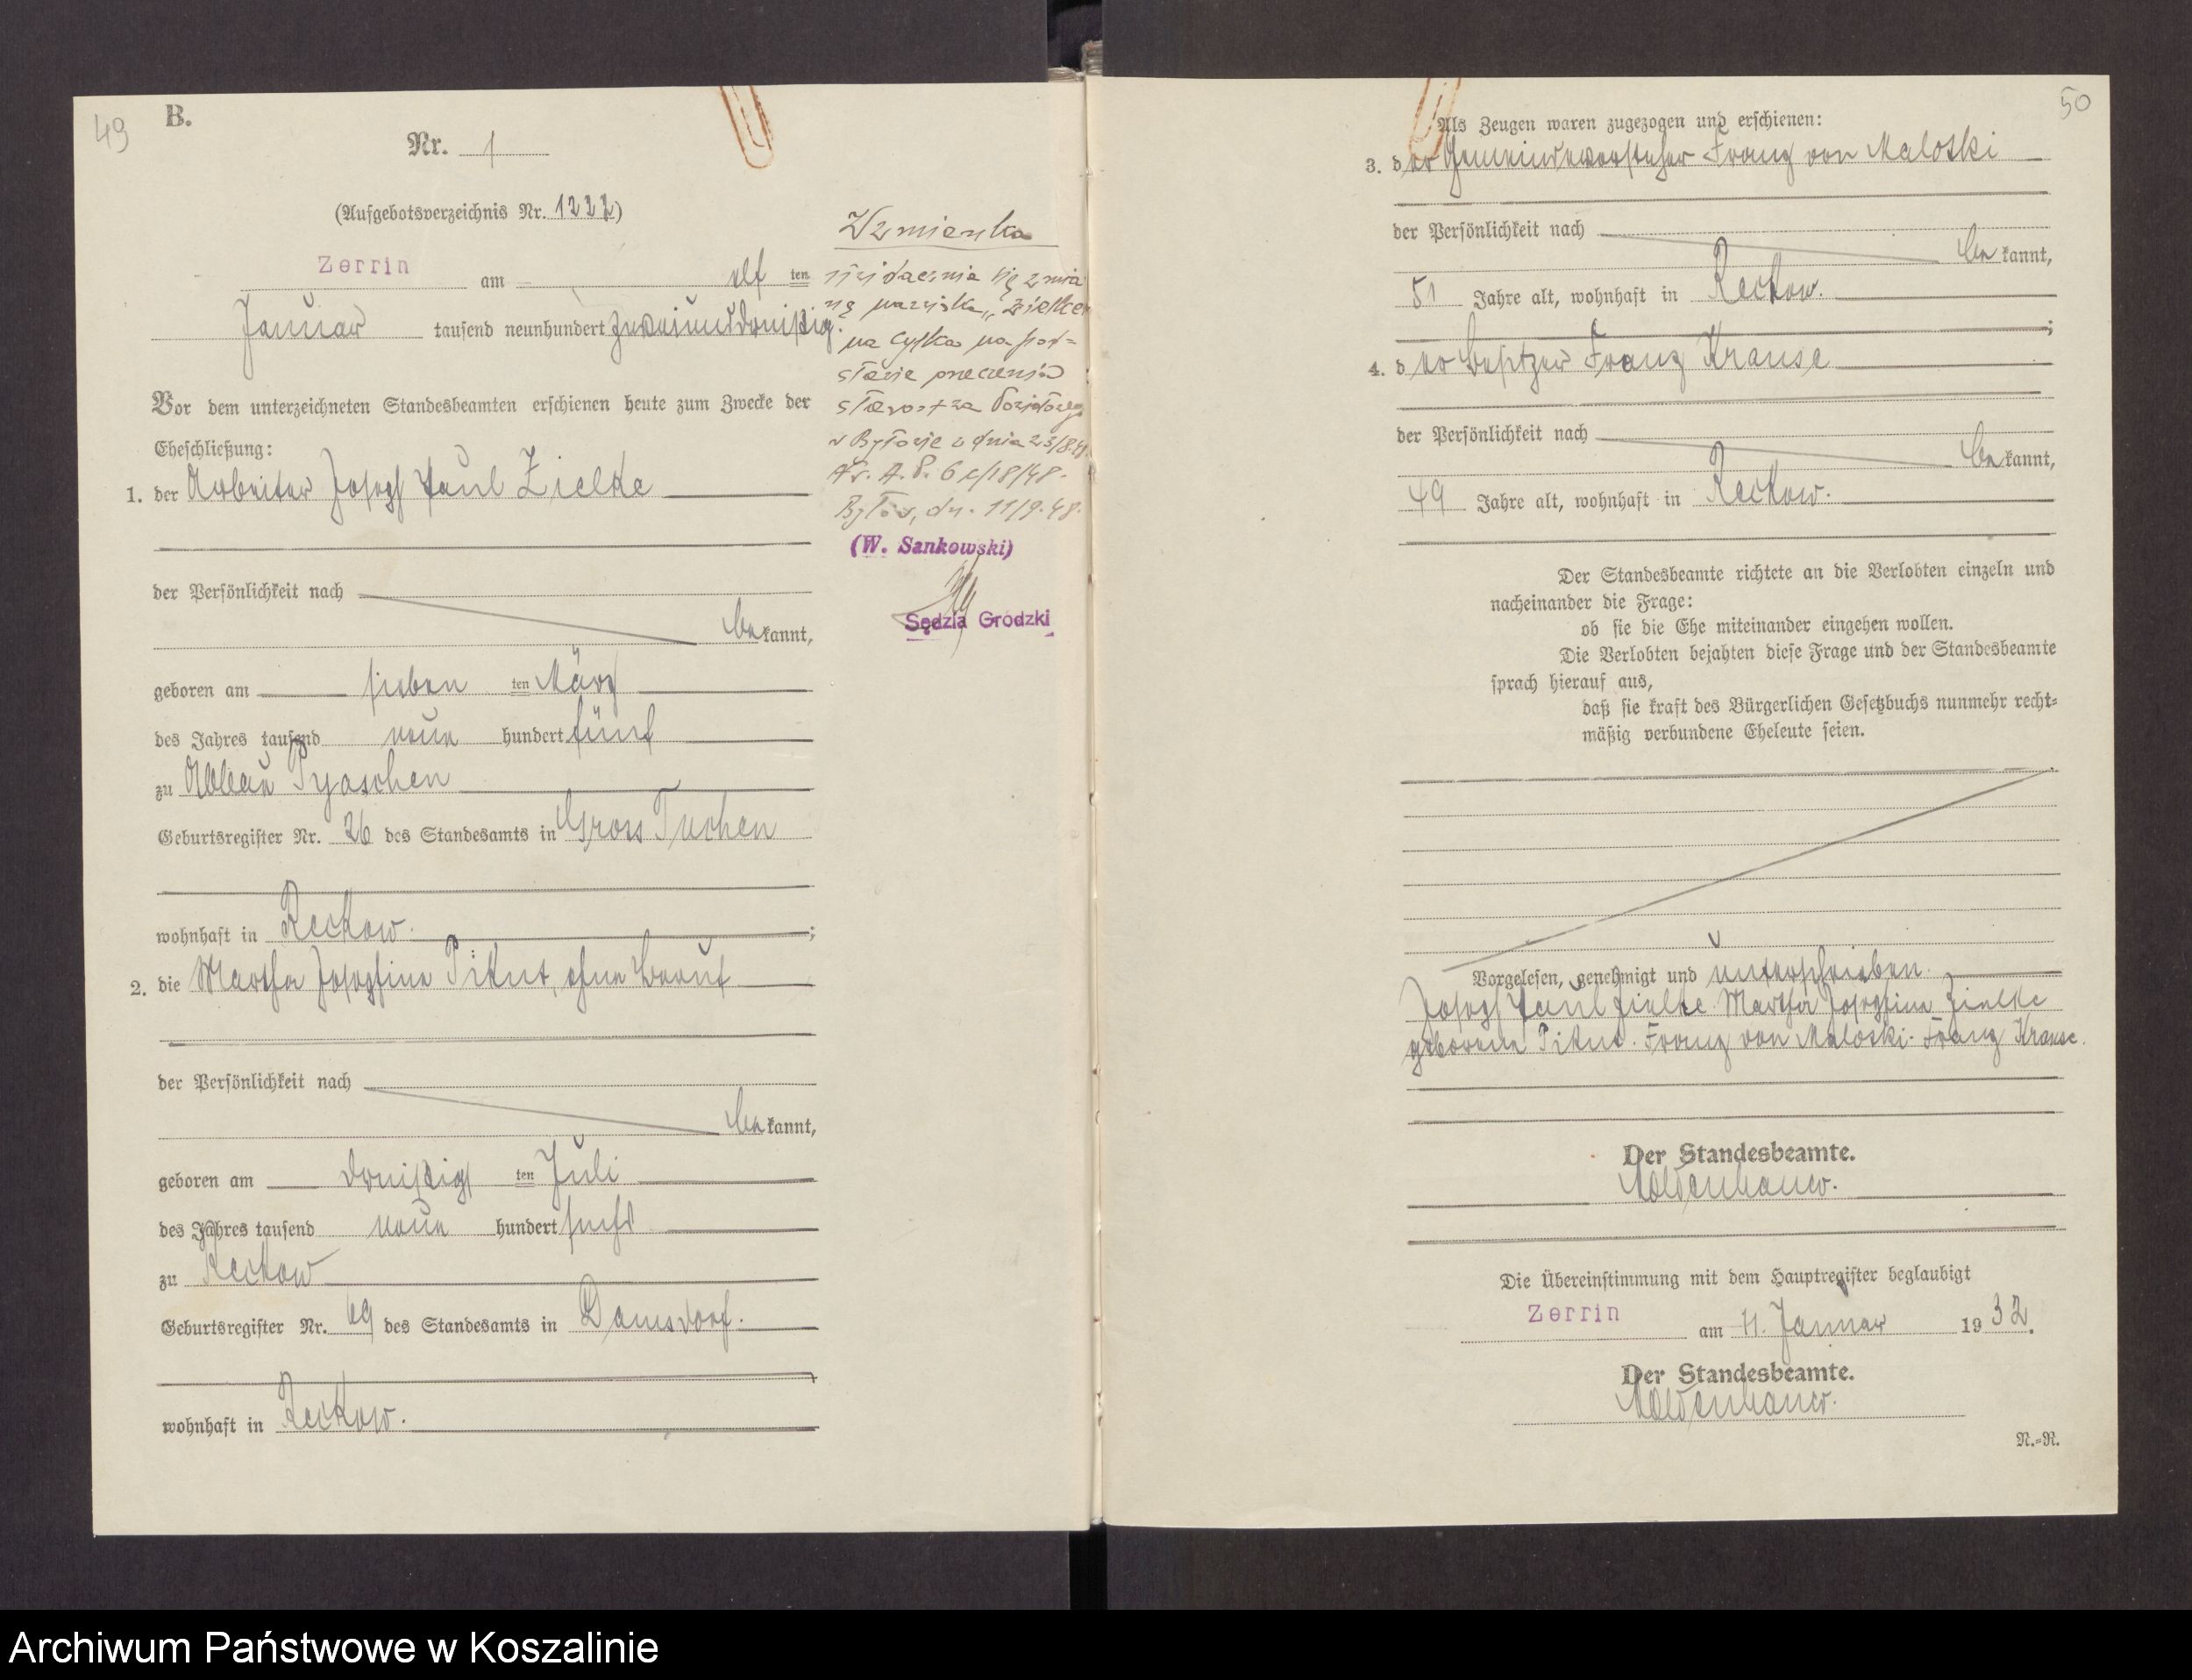 49
B.
Nr. 1
(Aufgebotsverzeichnis Nr. 1232)
Zerrin am elf ten
Januar tausend neunhundert zweiunddreißig.
Vor dem unterzeichneten Standesbeamten erschienen heute zum Zwecke der
Eheschließung:
1. der Arbeiter Josef Paul Zielke
der Persönlichkeit nach
bekannt,
geboren am sieben ten März
des Jahres tausend neun hundert fünf
zu Abbau Pyaschen
Geburtsregister Nr. 26 des Standesamts in Gross Tuchen
wohnhaft in Reckow.;
2. die Martha Josephine Pikut, ohne Beruf
der Persönlichkeit nach
bekannt,
geboren am dreißig ten Juli
des Jahres tausend neun hundert sechs
zu Reckow
Geburtsregister Nr. 69 des Standesamts in Damsdorf.
wohnhaft in Reckow.
Wzmianka
się zmia
nę nazwiska „Zielke
na Cylka na pod=
stawie orzeczenia
starostwa
w Bytowie z dnia 23/8.48
Nr. A. P. 6 c/18/48.
Bytów, dn. 11/9.48.
(W. Sankowski)
Sędzia Grodzki
50
Als Zeugen waren zugezogen und erschienen:
3. der Gemeindevorsteher Franz von Maloski
der Persönlichkeit nach
bekannt,
51 Jahre alt, wohnhaft in Reckow.
;
4. der Besitzer Franz Krause
der Persönlichkeit nach
bekannt,
49 Jahre alt, wohnhaft in Reckow.
Der Standesbeamte richtete an die Verlobten einzeln und
nacheinander die Frage:
ob sie die Ehe miteinander eingehen wollen.
Die Verlobten bejahten diese Frage und der Standesbeamte
sprach hierauf aus,
daß sie kraft des Bürgerlichen Gesetzbuchs nunmehr recht=
mäßig verbundene Eheleute seien.
Vorgelesen, genehmigt und unterschrieben.
Josef Paul Zielke. Martha Josephine Zielke
geborene Pikut. Franz von Maloski. Franz Krause.
Der Standesbeamte.
Moldenhauer.
Die Übereinstimmung mit dem Hauptregister beglaubigt
Zerrin am 11. Januar 1932.
Der Standesbeamte.
Moldenhauer.
N.=R.
Archiwum Państwowe w Koszalinie